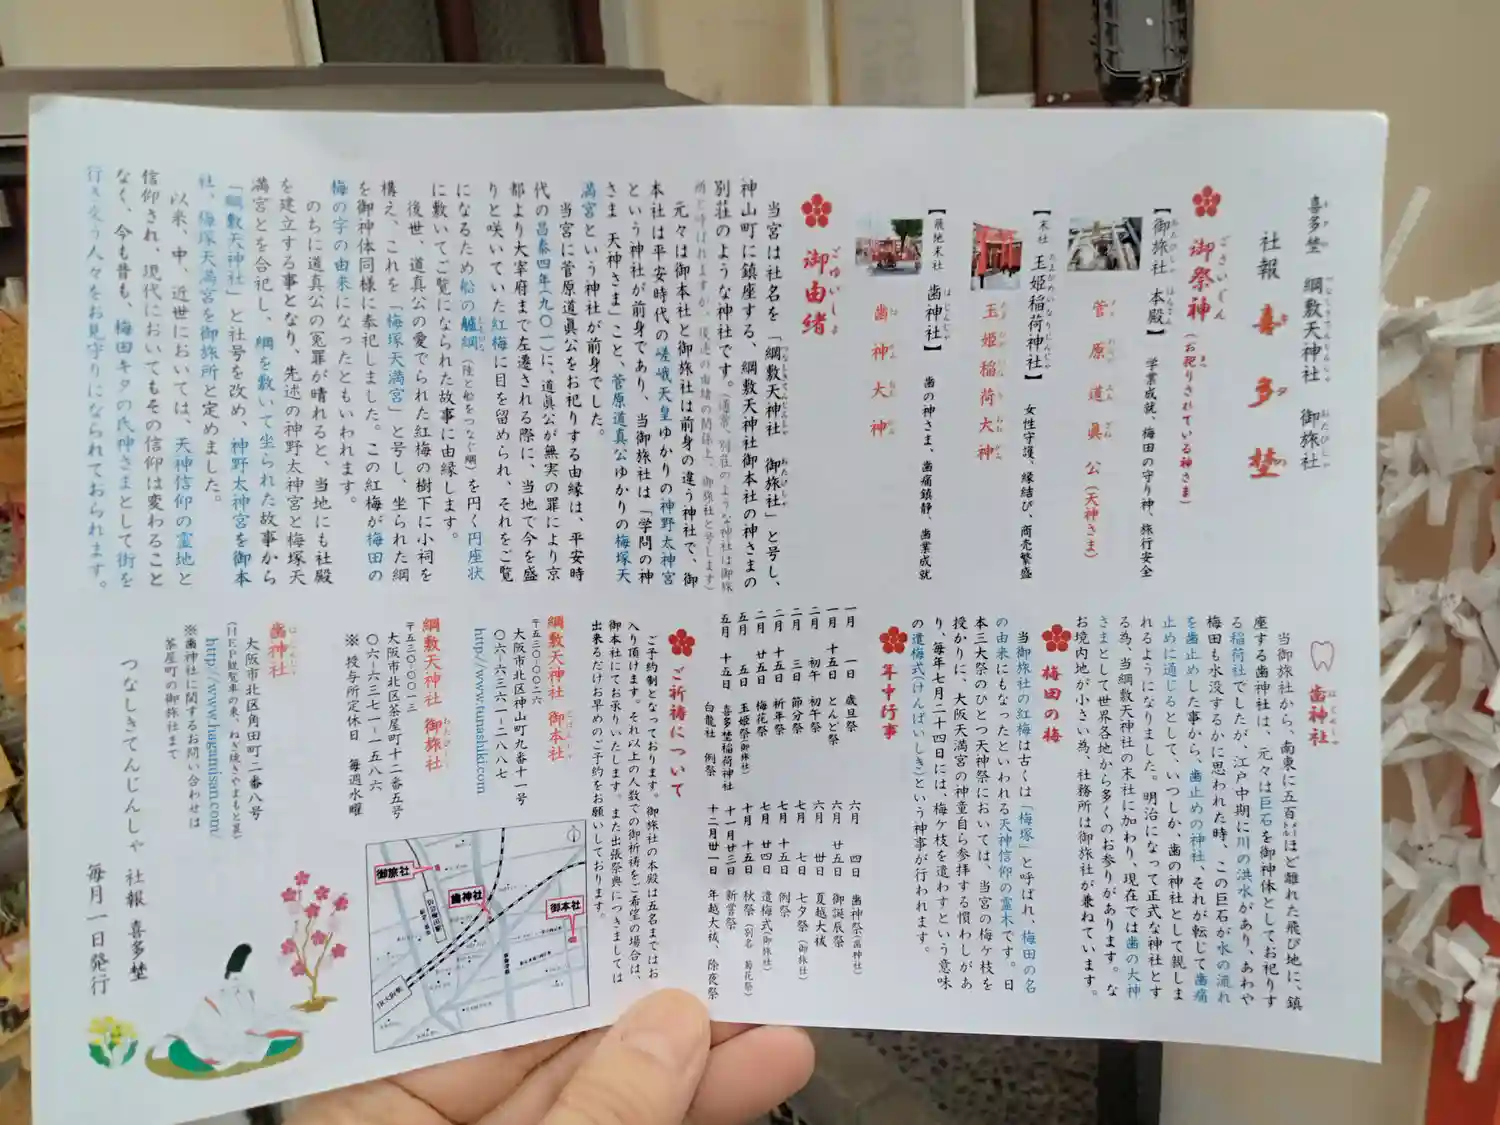 喜多埜 綱敷天神社 御旅社
社報 喜多埜
御祭神（お祀りされている神さま）
【御旅社 本殿】 学業成就、梅田の守り神、旅行安全
菅原道眞公（天神さま）
【末社 玉姫稲荷神社】 女性守護、縁結び、商売繁盛
玉姫稲荷大神
【飛地末社 歯神社】 歯の神さま、歯痛鎮静、歯業成就
歯神大神
御由緒
当宮は社名を「綱敷天神社 御旅社」と号し、
神山町に鎮座する、綱敷天神社御本社の神さまの
別荘のような神社です。（通常、別荘のような神社は御旅
所と呼ばれますが、後述の由緒の関係上、御旅社と号します）
元々は御本社と御旅社は前身の違う神社で、御
本社は平安時代の嵯峨天皇ゆかりの神野太神宮
という神社が前身であり、当御旅社は「学問の神
さま 天神さま」こと、菅原道真公ゆかりの梅塚天
満宮という神社が前身でした。
当宮に菅原道眞公をお祀りする由縁は、平安時
代の昌泰四年（九〇一）に、道真公が無実の罪により京
都より大宰府まで左遷される際に、当地で今を盛
りと咲いていた紅梅に目を留められ、それをご覧
になるため船の艫綱（陸と船をつなぐ綱）を円く円座状
に敷いてご覧になられた故事に由縁します。
後世、道真公の愛でられた紅梅の樹下に小祠を
構え、これを「梅塚天満宮」と号し、坐られた綱
を御神体同様に奉祀しました。この紅梅が梅田の
梅の字の由来になったともいわれます。
のちに道真公の冤罪が晴れると、当地にも社殿
を建立する事となり、先述の神野太神宮と梅塚天
満宮とを合祀し、綱を敷いて坐られた故事から
「綱敷天神社」と社号を改め、神野太神宮を御本
社、梅塚天満宮を御旅所と定めました。
以来、中、近世においては、天神信仰の霊地と
信仰され、現代においてもその信仰は変わること
なく、今も昔も、梅田キタの氏神さまとして街を
行き交う人々をお見守りになられております。
歯神社
当御旅社から、南東に五百㍍ほど離れた飛び地に、鎮
座する歯神社は、元々は巨石を御神体としてお祀りす
る稲荷社でしたが、江戸中期に川の洪水があり、あわや
梅田も水没するかに思われた時、この巨石が水の流れ
を歯止めした事から、歯止めの神社、それが転じて歯痛
止めに通じるとして、いつしか、歯の神社として親しま
れるようになりました。明治になって正式な神社とす
る為、当綱敷天神社の末社に加わり、現在では歯の大神
さまとして世界各地から多くのお参りがあります。な
お境内地が小さい為、社務所は御旅社が兼ねています。
梅田の梅
当御旅社の紅梅は古くは「梅塚」と呼ばれ、梅田の名
の由来にもなったといわれる天神信仰の霊木です。日
本三大祭のひとつ天神祭においては、当宮の梅ケ枝を
授かりに、大阪天満宮の神童自ら参拝する慣わしがあ
り、毎年七月二十四日には、梅ケ枝を遣わすという意味
の遣梅式（けんばいしき）という神事が行われます。
年中行事
一月 一日 歳旦祭
一月 十五日 とんど祭
二月 初午 初午祭
二月 三日 節分祭
二月 十五日 祈年祭
二月 廿五日 梅花祭
五月 五日 玉姫祭（御旅社）
五月 十五日 喜多埜稲荷神社
白龍社 例祭
六月 四日 歯神祭（歯神社）
六月 廿五日 御誕辰祭
六月 卅日 夏越大祓
七月 七日 七夕祭（御旅社）
七月 十五日 例祭
七月 廿四日 遣梅式（御旅社）
十月 十五日 秋祭（別名 菊花祭）
十一月 廿三日 新嘗祭
十二月 卅一日 年越大祓、除夜祭
ご祈祷について
ご予約制となっております。御旅社の本殿は五名まではお
入り頂けます。それ以上の人数での御祈祷をご希望の場合は、
御本社にてお承りいたします。また出張祭典につきましては
出来るだけお早めのご予約をお願いしております。
綱敷天神社 御本社
〒五三〇-〇〇二六
大阪市北区神山町九番十一号
〇六-六三六一-二八八七
http://www.tunashiki.com
綱敷天神社 御旅社
〒五三〇-〇〇一三
大阪市北区茶屋町十二番五号
〇六-六三七一-一五八六
※ 授与所定休日 毎週水曜
歯神社
大阪市北区角田町二番八号
（HEP観覧車の東、ねぎ焼きやまもと裏）
http://www.hagamisan.com/
※歯神社に関するお問い合わせは
茶屋町の御旅社まで
御旅社
歯神社
御本社
JR大阪駅
つなしきてんじんしゃ 社報 喜多埜
毎月一日発行